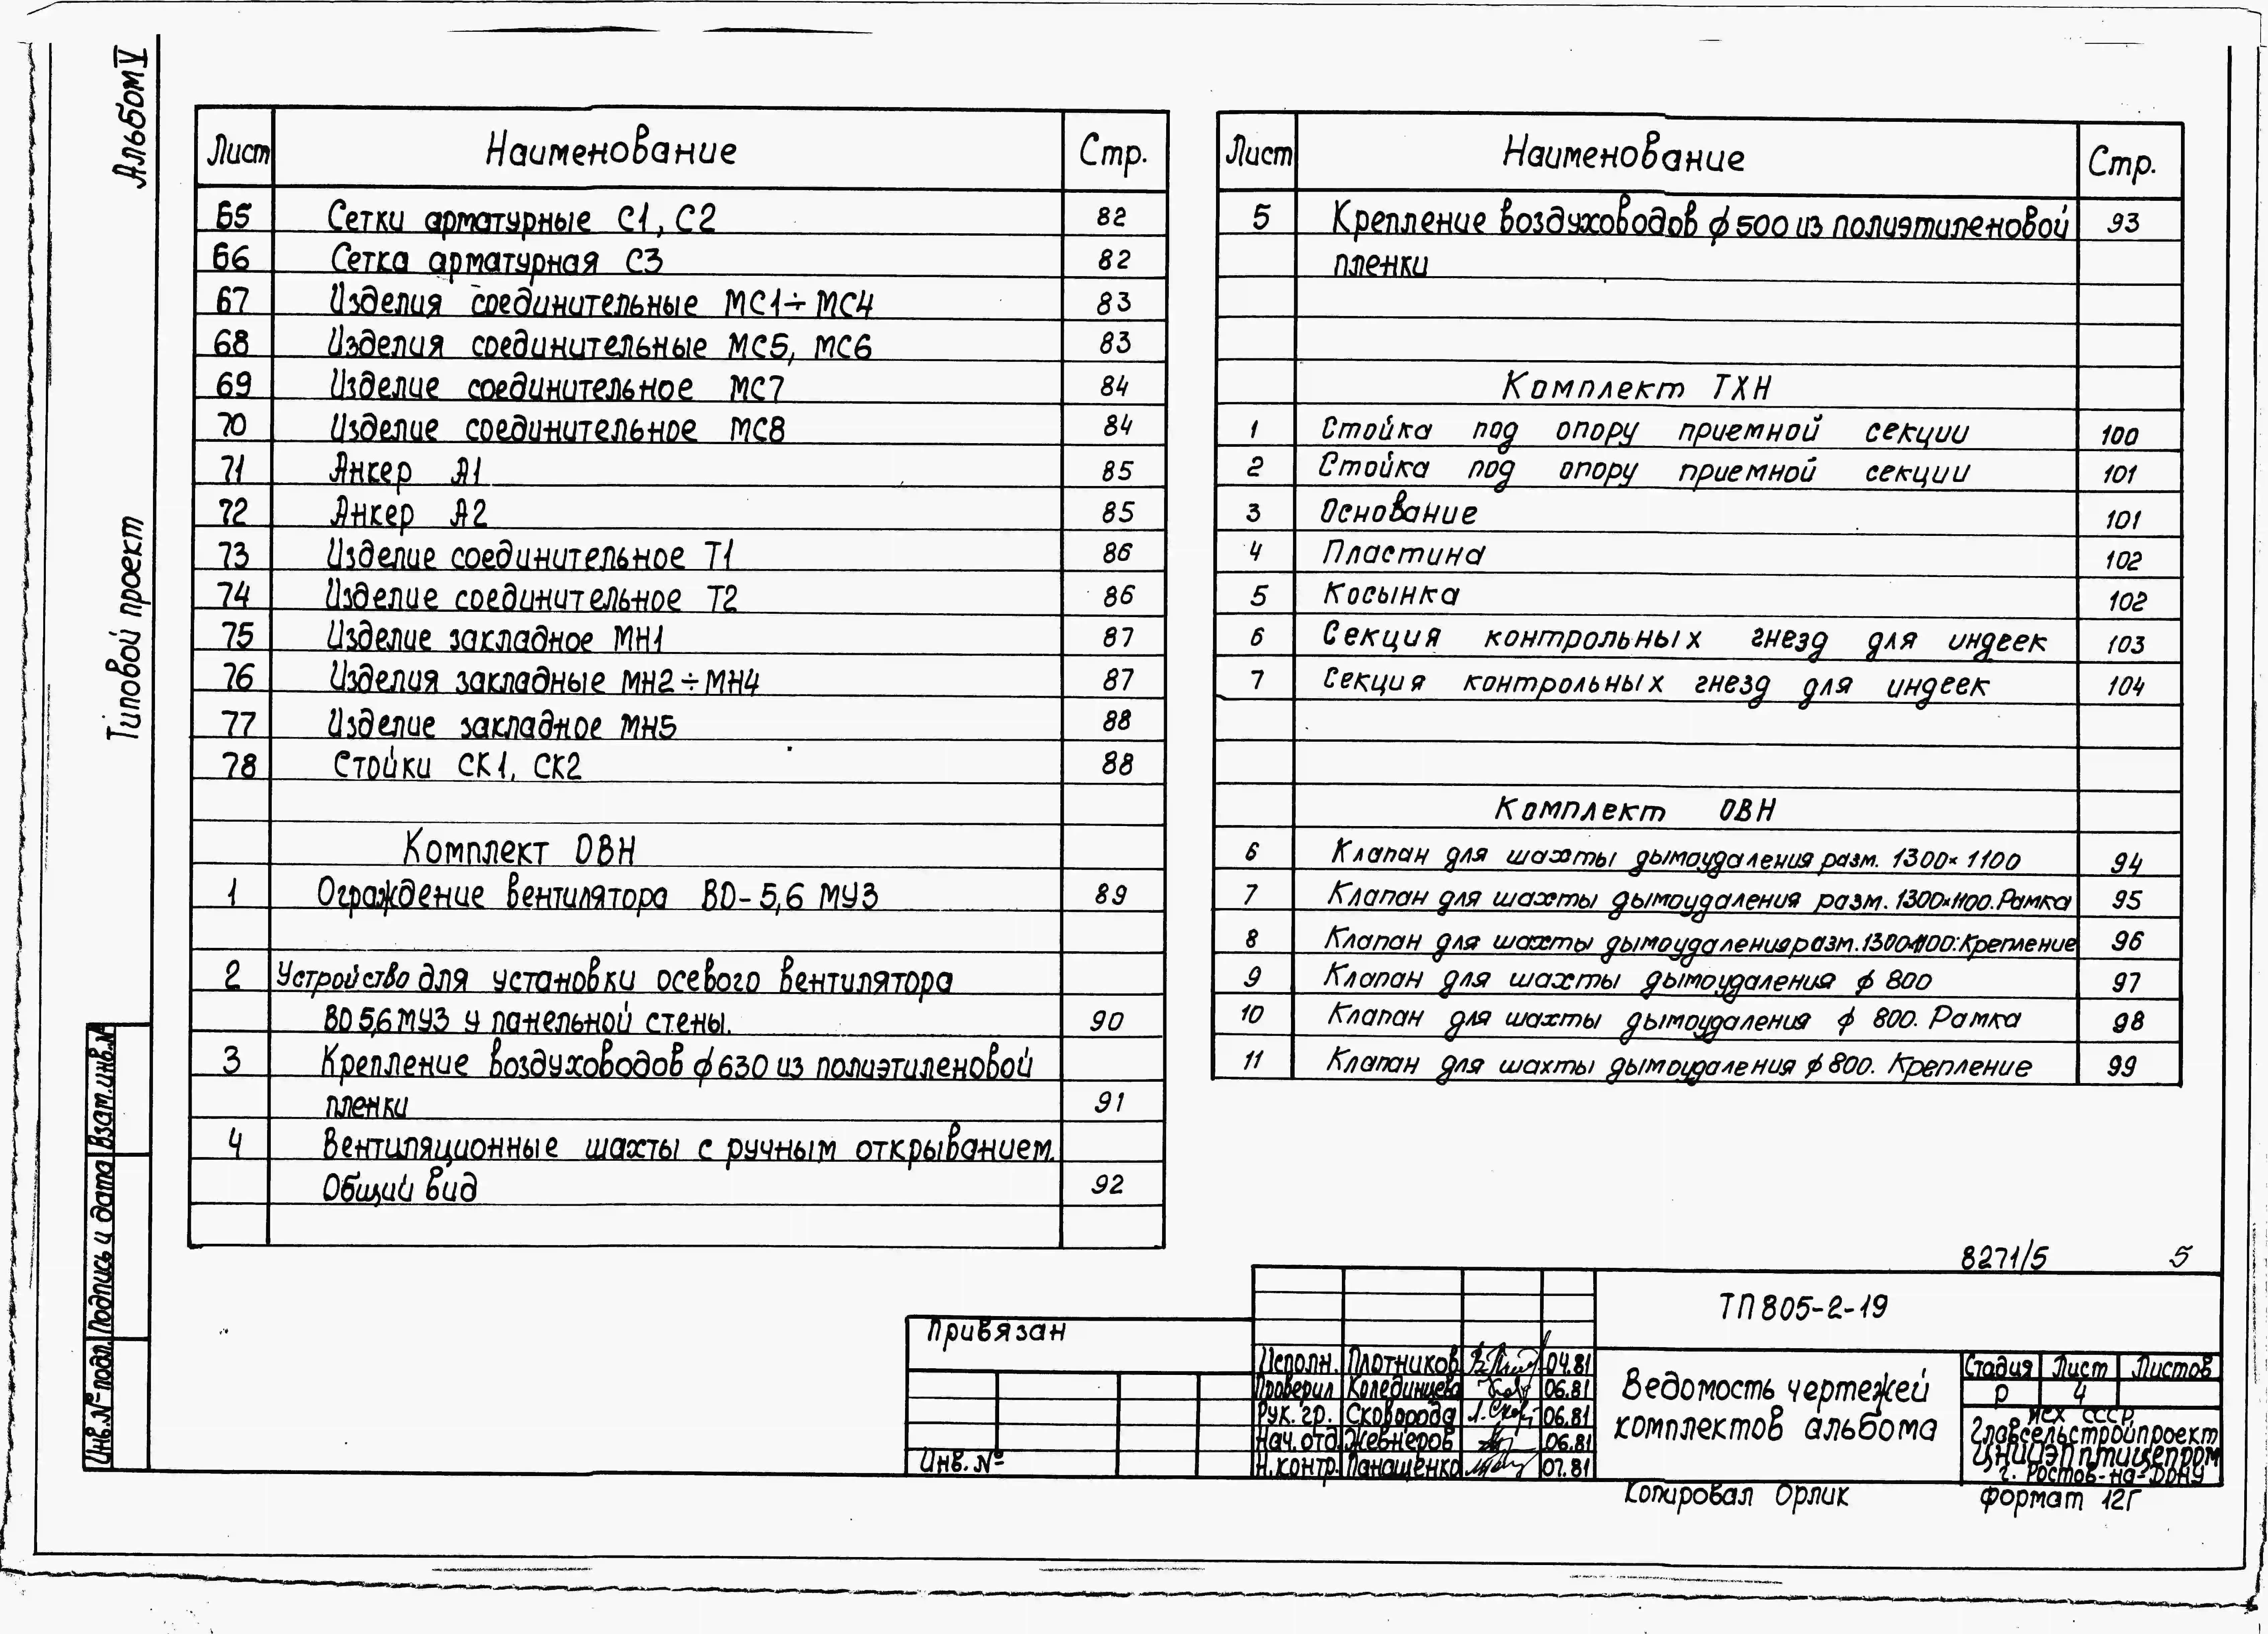 Альбом V
Типовой проект
Лист Наименование Стр.
65 Сетки арматурные С1, С2 82
66 Сетка арматурная С3 82
67 Изделия соединительные МС1÷МС4 83
68 Изделия соединительные МС5, МС6 83
69 Изделие соединительное МС7 84
70 Изделие соединительное МС8 84
71 Анкер А1 85
72 Анкер А2 85
73 Изделие соединительное Т1 86
74 Изделие соединительное Т2 86
75 Изделие закладное МН1 87
76 Изделия закладные МН2÷МН4 87
77 Изделие закладное МН5 88
78 Стойки СК1, СК2 88
Комплект ОВН
1 Ограждение вентилятора ВО-5,6 МУ3 89
2 Устройство для установки осевого вентилятора
ВО 5,6 МУ3 у панельной стены. 90
3 Крепление воздуховодов ϕ630 из полиэтиленовой
пленки 91
4 Вентиляционные шахты с ручным открыванием.
Общий вид 92
Лист Наименование Стр.
5 Крепление воздуховодов ϕ500 из полиэтиленовой 93
пленки
Комплект ТХН
1 Стойка под опору приемной секции 100
2 Стойка под опору приемной секции 101
3 Основание 101
4 Пластина 102
5 Косынка 102
6 Секция контрольных гнезд для индеек 103
7 Секция контрольных гнезд для индеек 104
Комплект ОВН
6 Клапан для шахты дымоудаления разм. 1300×1100 94
7 Клапан для шахты дымоудаления разм. 1300×1100. Рамка 95
8 Клапан для шахты дымоудаления разм. 1300×1100. Крепление 96
9 Клапан для шахты дымоудаления ϕ 800 97
10 Клапан для шахты дымоудаления ϕ 800. Рамка 98
11 Клапан для шахты дымоудаления ϕ 800. Крепление 99
Взам.инв.№
Подпись и дата
Инв.№ подл.
8271/5 5
Привязан
Инв. №
ТП 805-2-19
Исполн. Плотников 04.81
Проверил Колединцева 06.81
Рук. гр. Сковорода 06.81
Нач. отд. Жевнеров 06.81
Н.контр. Панащенко 07.81
Ведомость чертежей
комплектов альбома
Стадия Лист Листов
Р 4
МСХ СССР
Главсельстройпроект
ЦНИИЭПптицепром
г. Ростов-на-Дону
Копировал Орлик
Формат 12Г